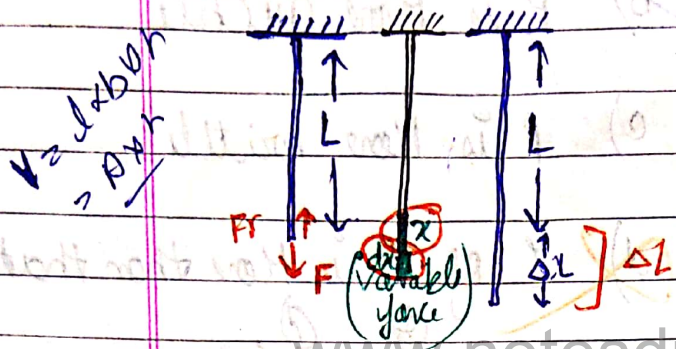 V = l×b×h
= A×h
L
L
Fr
F
x
dx
(variable
force)
Δl
ΔL